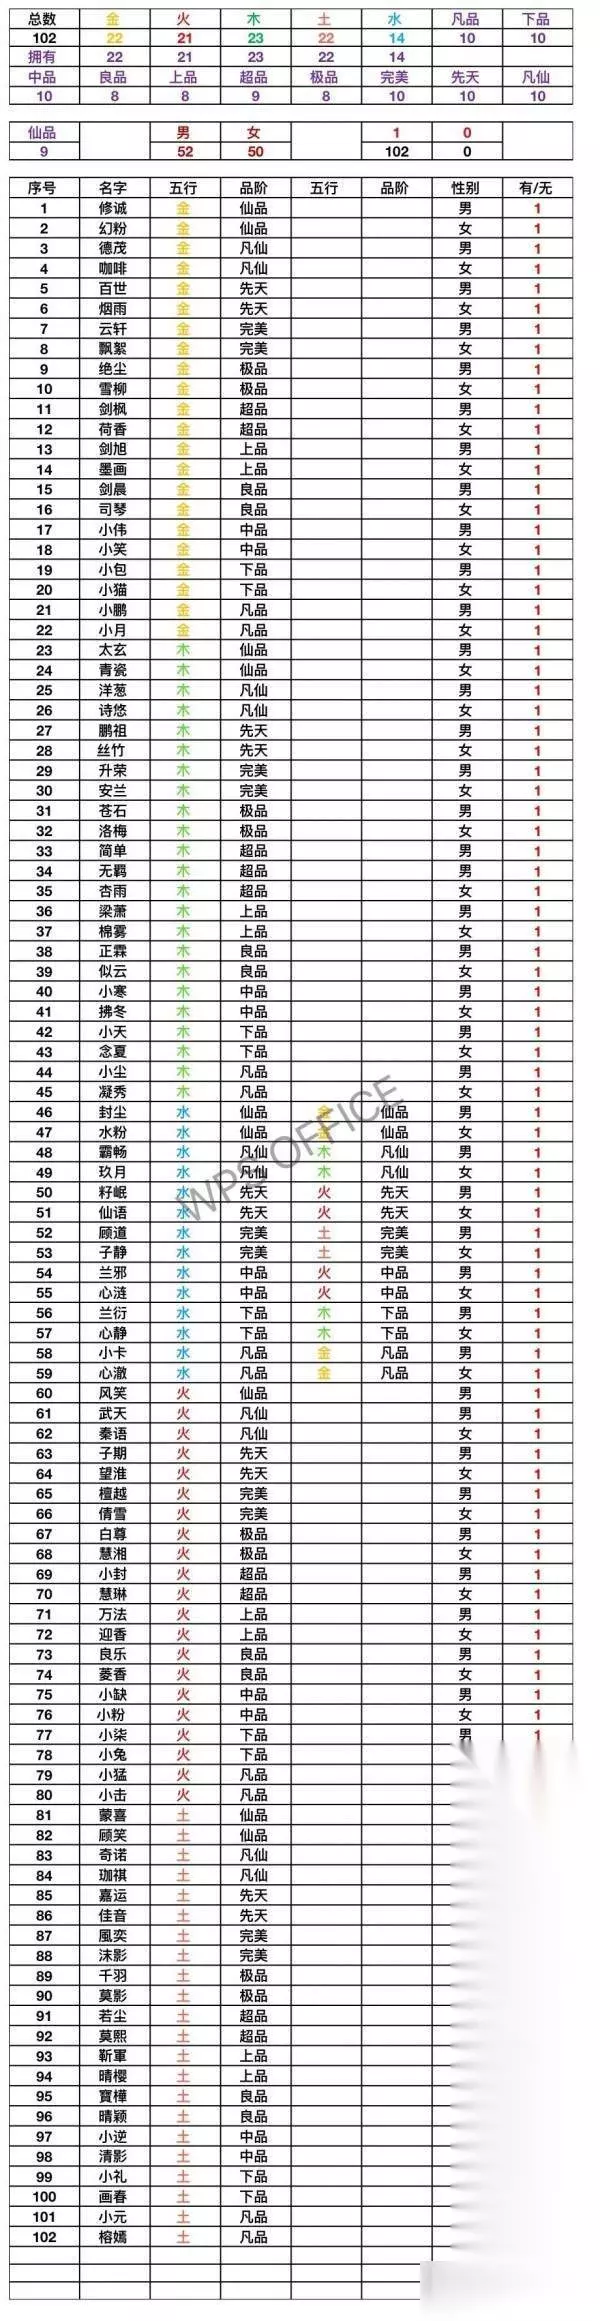 总数 金 火 木 土 水 凡品 下品
102 22 21 23 22 14 10 10
拥有 22 21 23 22 14
中品 良品 上品 超品 极品 完美 先天 凡仙
10 8 8 9 8 10 10 10
仙品 男 女 1 0
9 52 50 102 0
序号 名字 五行 品阶 五行 品阶 性别 有/无
1 修诚 金 仙品 男 1
2 幻粉 金 仙品 女 1
3 德茂 金 凡仙 男 1
4 咖啡 金 凡仙 女 1
5 百世 金 先天 男 1
6 烟雨 金 先天 女 1
7 云轩 金 完美 男 1
8 飘絮 金 完美 女 1
9 绝尘 金 极品 男 1
10 雪柳 金 极品 女 1
11 剑枫 金 超品 男 1
12 荷香 金 超品 女 1
13 剑旭 金 上品 男 1
14 墨画 金 上品 女 1
15 剑晨 金 良品 男 1
16 司琴 金 良品 女 1
17 小伟 金 中品 男 1
18 小笑 金 中品 女 1
19 小包 金 下品 男 1
20 小猫 金 下品 女 1
21 小鹏 金 凡品 男 1
22 小月 金 凡品 女 1
23 太玄 木 仙品 男 1
24 青瓷 木 仙品 女 1
25 洋葱 木 凡仙 男 1
26 诗悠 木 凡仙 女 1
27 鹏祖 木 先天 男 1
28 丝竹 木 先天 女 1
29 升荣 木 完美 男 1
30 安兰 木 完美 女 1
31 苍石 木 极品 男 1
32 洛梅 木 极品 女 1
33 简单 木 超品 男 1
34 无羁 木 超品 男 1
35 杏雨 木 超品 女 1
36 梁萧 木 上品 男 1
37 棉雾 木 上品 女 1
38 正霖 木 良品 男 1
39 似云 木 良品 女 1
40 小寒 木 中品 男 1
41 拂冬 木 中品 女 1
42 小天 木 下品 男 1
43 念夏 木 下品 女 1
44 小尘 木 凡品 男 1
45 凝秀 木 凡品 女 1
46 封尘 水 仙品 金 仙品 男 1
47 水粉 水 仙品 金 仙品 女 1
48 霸畅 水 凡仙 木 凡仙 男 1
49 玖月 水 凡仙 木 凡仙 女 1
50 籽岷 水 先天 火 先天 男 1
51 仙语 水 先天 火 先天 女 1
52 顾道 水 完美 土 完美 男 1
53 子静 水 完美 土 完美 女 1
54 兰邪 水 中品 火 中品 男 1
55 心涟 水 中品 火 中品 女 1
56 兰衍 水 下品 木 下品 男 1
57 心静 水 下品 木 下品 女 1
58 小卡 水 凡品 金 凡品 男 1
59 心澈 水 凡品 金 凡品 女 1
60 风笑 火 仙品 男 1
61 武天 火 凡仙 男 1
62 秦语 火 凡仙 女 1
63 子期 火 先天 男 1
64 望淮 火 先天 女 1
65 檀越 火 完美 男 1
66 倩雪 火 完美 女 1
67 白尊 火 极品 男 1
68 慧湘 火 极品 女 1
69 小封 火 超品 男 1
70 慧琳 火 超品 女 1
71 万法 火 上品 男 1
72 迎香 火 上品 女 1
73 良乐 火 良品 男 1
74 菱香 火 良品 女 1
75 小缺 火 中品 男 1
76 小粉 火 中品 女 1
77 小柒 火 下品 男 1
78 小兔 火 下品
79 小猛 火 凡品
80 小击 火 凡品
81 蒙喜 土 仙品
82 顾笑 土 仙品
83 奇诺 土 凡仙
84 珈祺 土 凡仙
85 嘉运 土 先天
86 佳音 土 先天
87 風奕 土 完美
88 沫影 土 完美
89 千羽 土 极品
90 莫影 土 极品
91 若尘 土 超品
92 莫熙 土 超品
93 靳軍 土 上品
94 晴樱 土 上品
95 寶樺 土 良品
96 晴颖 土 良品
97 小逆 土 中品
98 清影 土 中品
99 小礼 土 下品
100 画春 土 下品
101 小元 土 凡品
102 榕嫣 土 凡品
WPS OFFICE